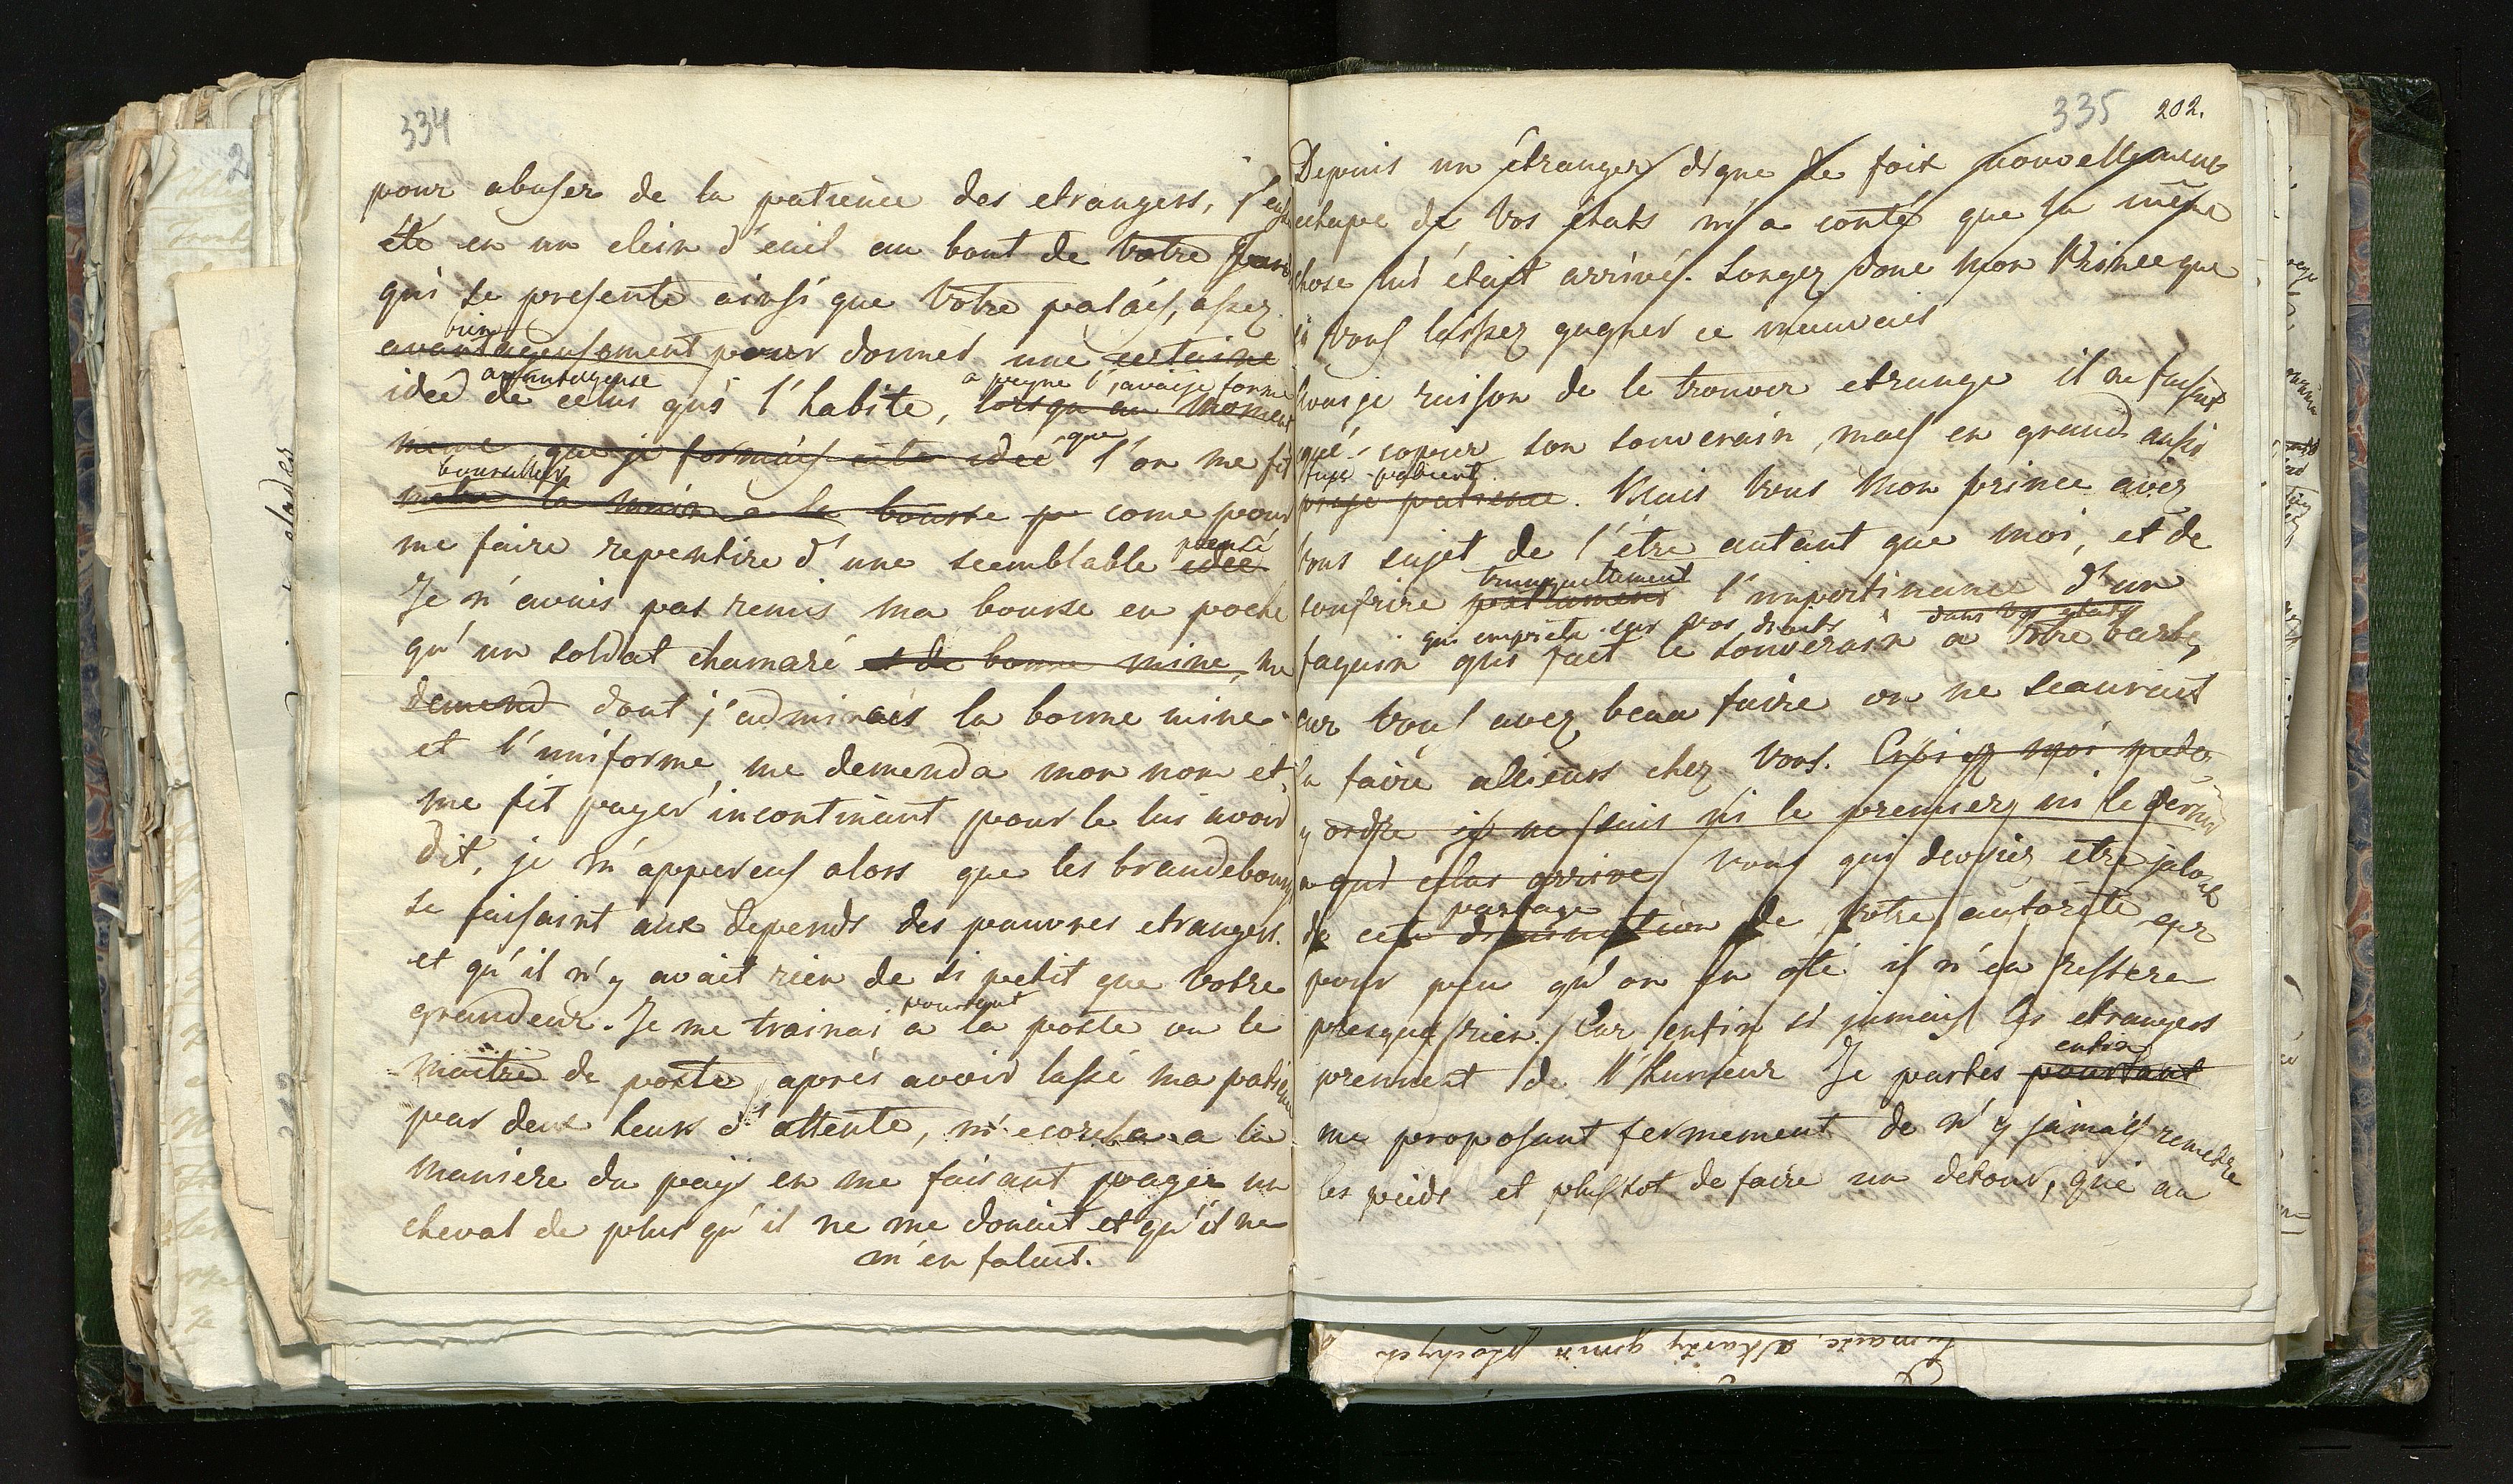 334
pour abuser de la patience des etrangers, j'eusse
été en un clein d'euil au bout de votre
qui se presente ainsi que votre palais, assez
bien
avantageusement pour donner une certaine
avantageuse
a peyne l'avaije formé
idée de celui qui l'habite, lorsqu'au moment
meme que je formais cete idée que l'on me fit
boursiller
metre la main a la bourse p come pour
pensé
me faire repentire d'une seemblable idée
Je n'avais pas remis ma bourse en poche
qu'un soldat chamaré et de bonne mine, me
demend dont j'admirais la bonne mine
et l'uniforme, me demenda mon nom et
me fit payer incontinant pour le lui avoir
dit, je m'appereus alors que les brandebourgs
se faisaint aux depends des pauvres etrangers.
et qu'il n'y avait rien de si petit que votre
pourtant
grandeur. Je me trainai a la poste ou le
maitre de poste, aprés avoir lassé ma patience
par deux heurs d'attente, m'ecorcha a la
maniere du pays en me faisant payer un
cheval de plus qu'il ne me donait et qu'il ne
m'en falait.
335 202.
Depuis un étranger digne de foix nouvellement
echape de vos états m'a conté que la même
chose lui était arrivé. Songez donc mon Prince que
si vous laissez gagner ce mauvais
avais je raison de le trouver etrange il ne faisait
que copier son souverain, mais en grand aussi
fuse patient
prise patience. Mais vous mon prince avez
tous sujet de l'être autant que moi, et de
tranquillement
soufrire l'impertinance d'un
qui empiete sur vos droits dans vos etats
faquin qui fait le souverain a votre barbe,
car vous avez beau faire on ne scaurait
la faire alieurs chez vous. Croiez moi metez
y ordre je ne suis ni le premier ni le dernier
a qui cela arrive vous qui devriez etre jaloux
partage
de cete diminution de votre autorite car
pour peu qu'on en ote il n'en restera
presque rien. Car enfin si jamais les etrangers
prennent de l'humeur Je partis pourtant
enfin
me proposant fermement de n'y jamais remetre
les pieds et plustot de faire un detour, que au